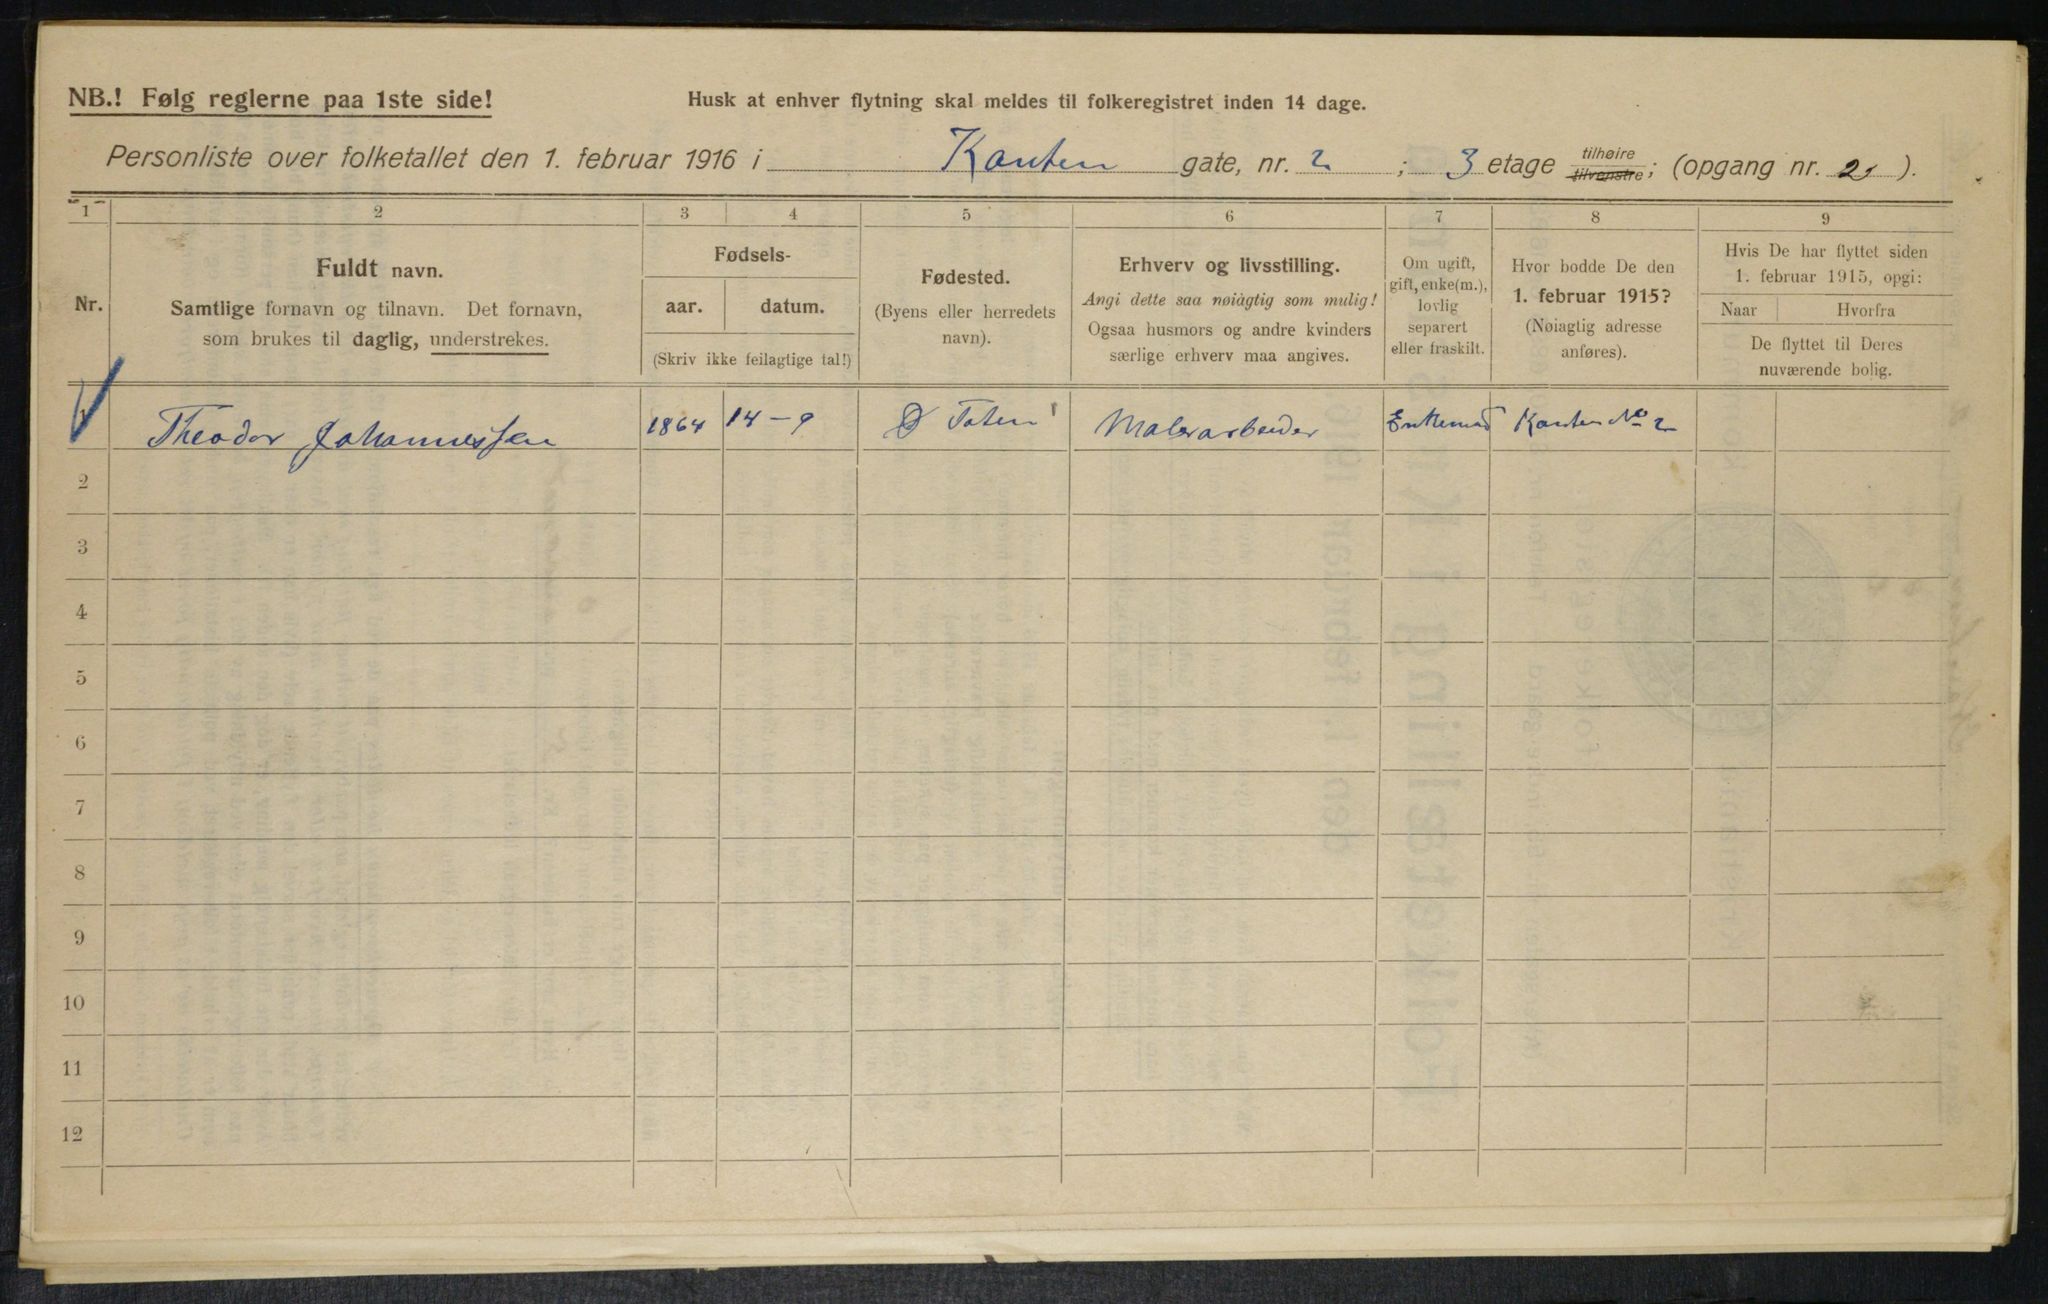 NB.! Følg reglerne paa 1ste side!
Husk at enhver flytning skal meldes til folkeregistret inden 14 dage.
Personliste over folketallet den 1. februar 1916 i Kanten gate, nr. 2 ; 3 etage tilhøire tilvenstre; (opgang nr. 2 ).
1 2 3 4 5 6 7 8 9
Nr.
Fuldt navn.
Samtlige fornavn og tilnavn. Det fornavn,
som brukes til daglig, understrekes.
Fødsels-
aar. datum.
(Skriv ikke feilagtige tal!)
Fødested.
(Byens eller herredets
navn).
Erhverv og livsstilling.
Angi dette saa nøiagtig som mulig!
Ogsaa husmors og andre kvinders
særlige erhverv maa angives.
Om ugift,
gift, enke(m.),
lovlig
separert
eller fraskilt.
Hvor bodde De den
1. februar 1915?
(Nøiagtig adresse
anføres).
Hvis De har flyttet siden
1. februar 1915, opgi:
Naar Hvorfra
De flyttet til Deres
nuværende bolig.
1 Theodor Johannessen 1864 14-9 Ø Toten Malerarbeider Enkemand Kanten No 2
2
3
4
5
6
7
8
9
10
11
12